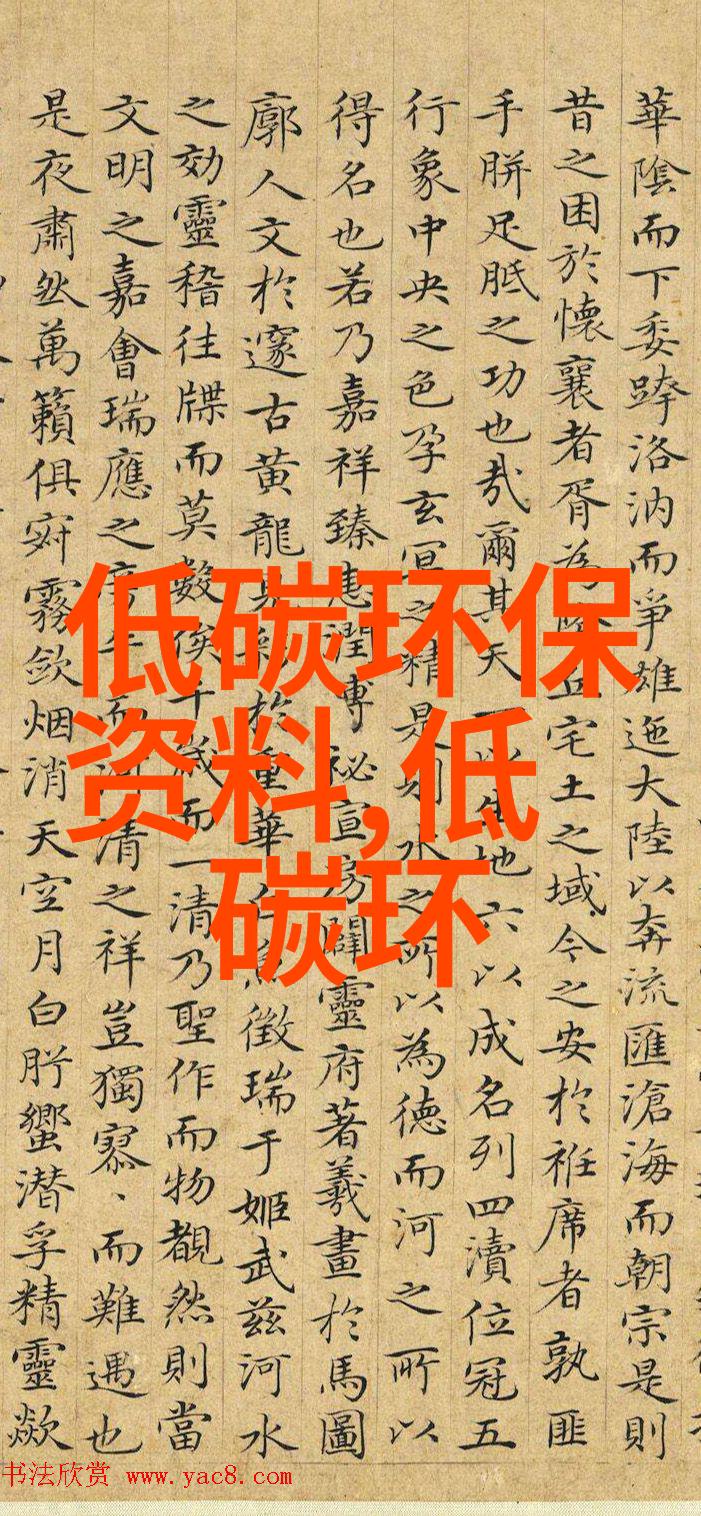 華陰而下委洛汭而爭雄迤大陸以奔流匯滄海而朝宗是則
昔之困於懷襄者胥為丘宅土之域今之安於袵席者孰匪
手胼足胝之功也哉爾其天一以生地六以成名列四瀆位冠五
行象中央之色孕玄冥之精是則水之所以為德而河之所以
得名也若乃嘉祥臻惠潤博秘宣房闢靈府著羲畫於馬圖
廓人文於邃古黃龍見於重華白魚徵瑞于姬武茲河水
之効靈稽往牒而莫數俟千歲而一清乃聖作而物覩然則當
文明之嘉會瑞應之而河清之祥豈獨寥、而難遇也
是夜肅然萬籟俱寂霧斂烟消天空月白肸蠁潛孚精靈歘
低碳环保
资料,低
碳环
书法欣赏 www.yac8.com